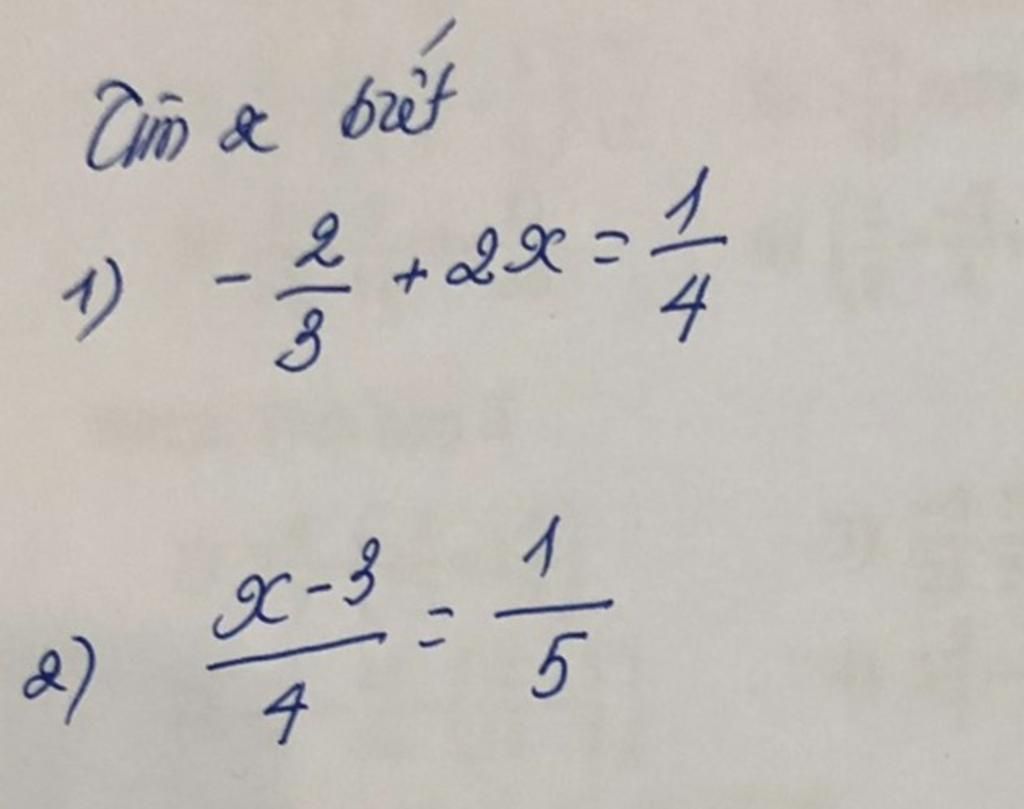 Tìm x biết
1) - 2/3 + 2x = 1/4
2) x - 3/4 = 1/5